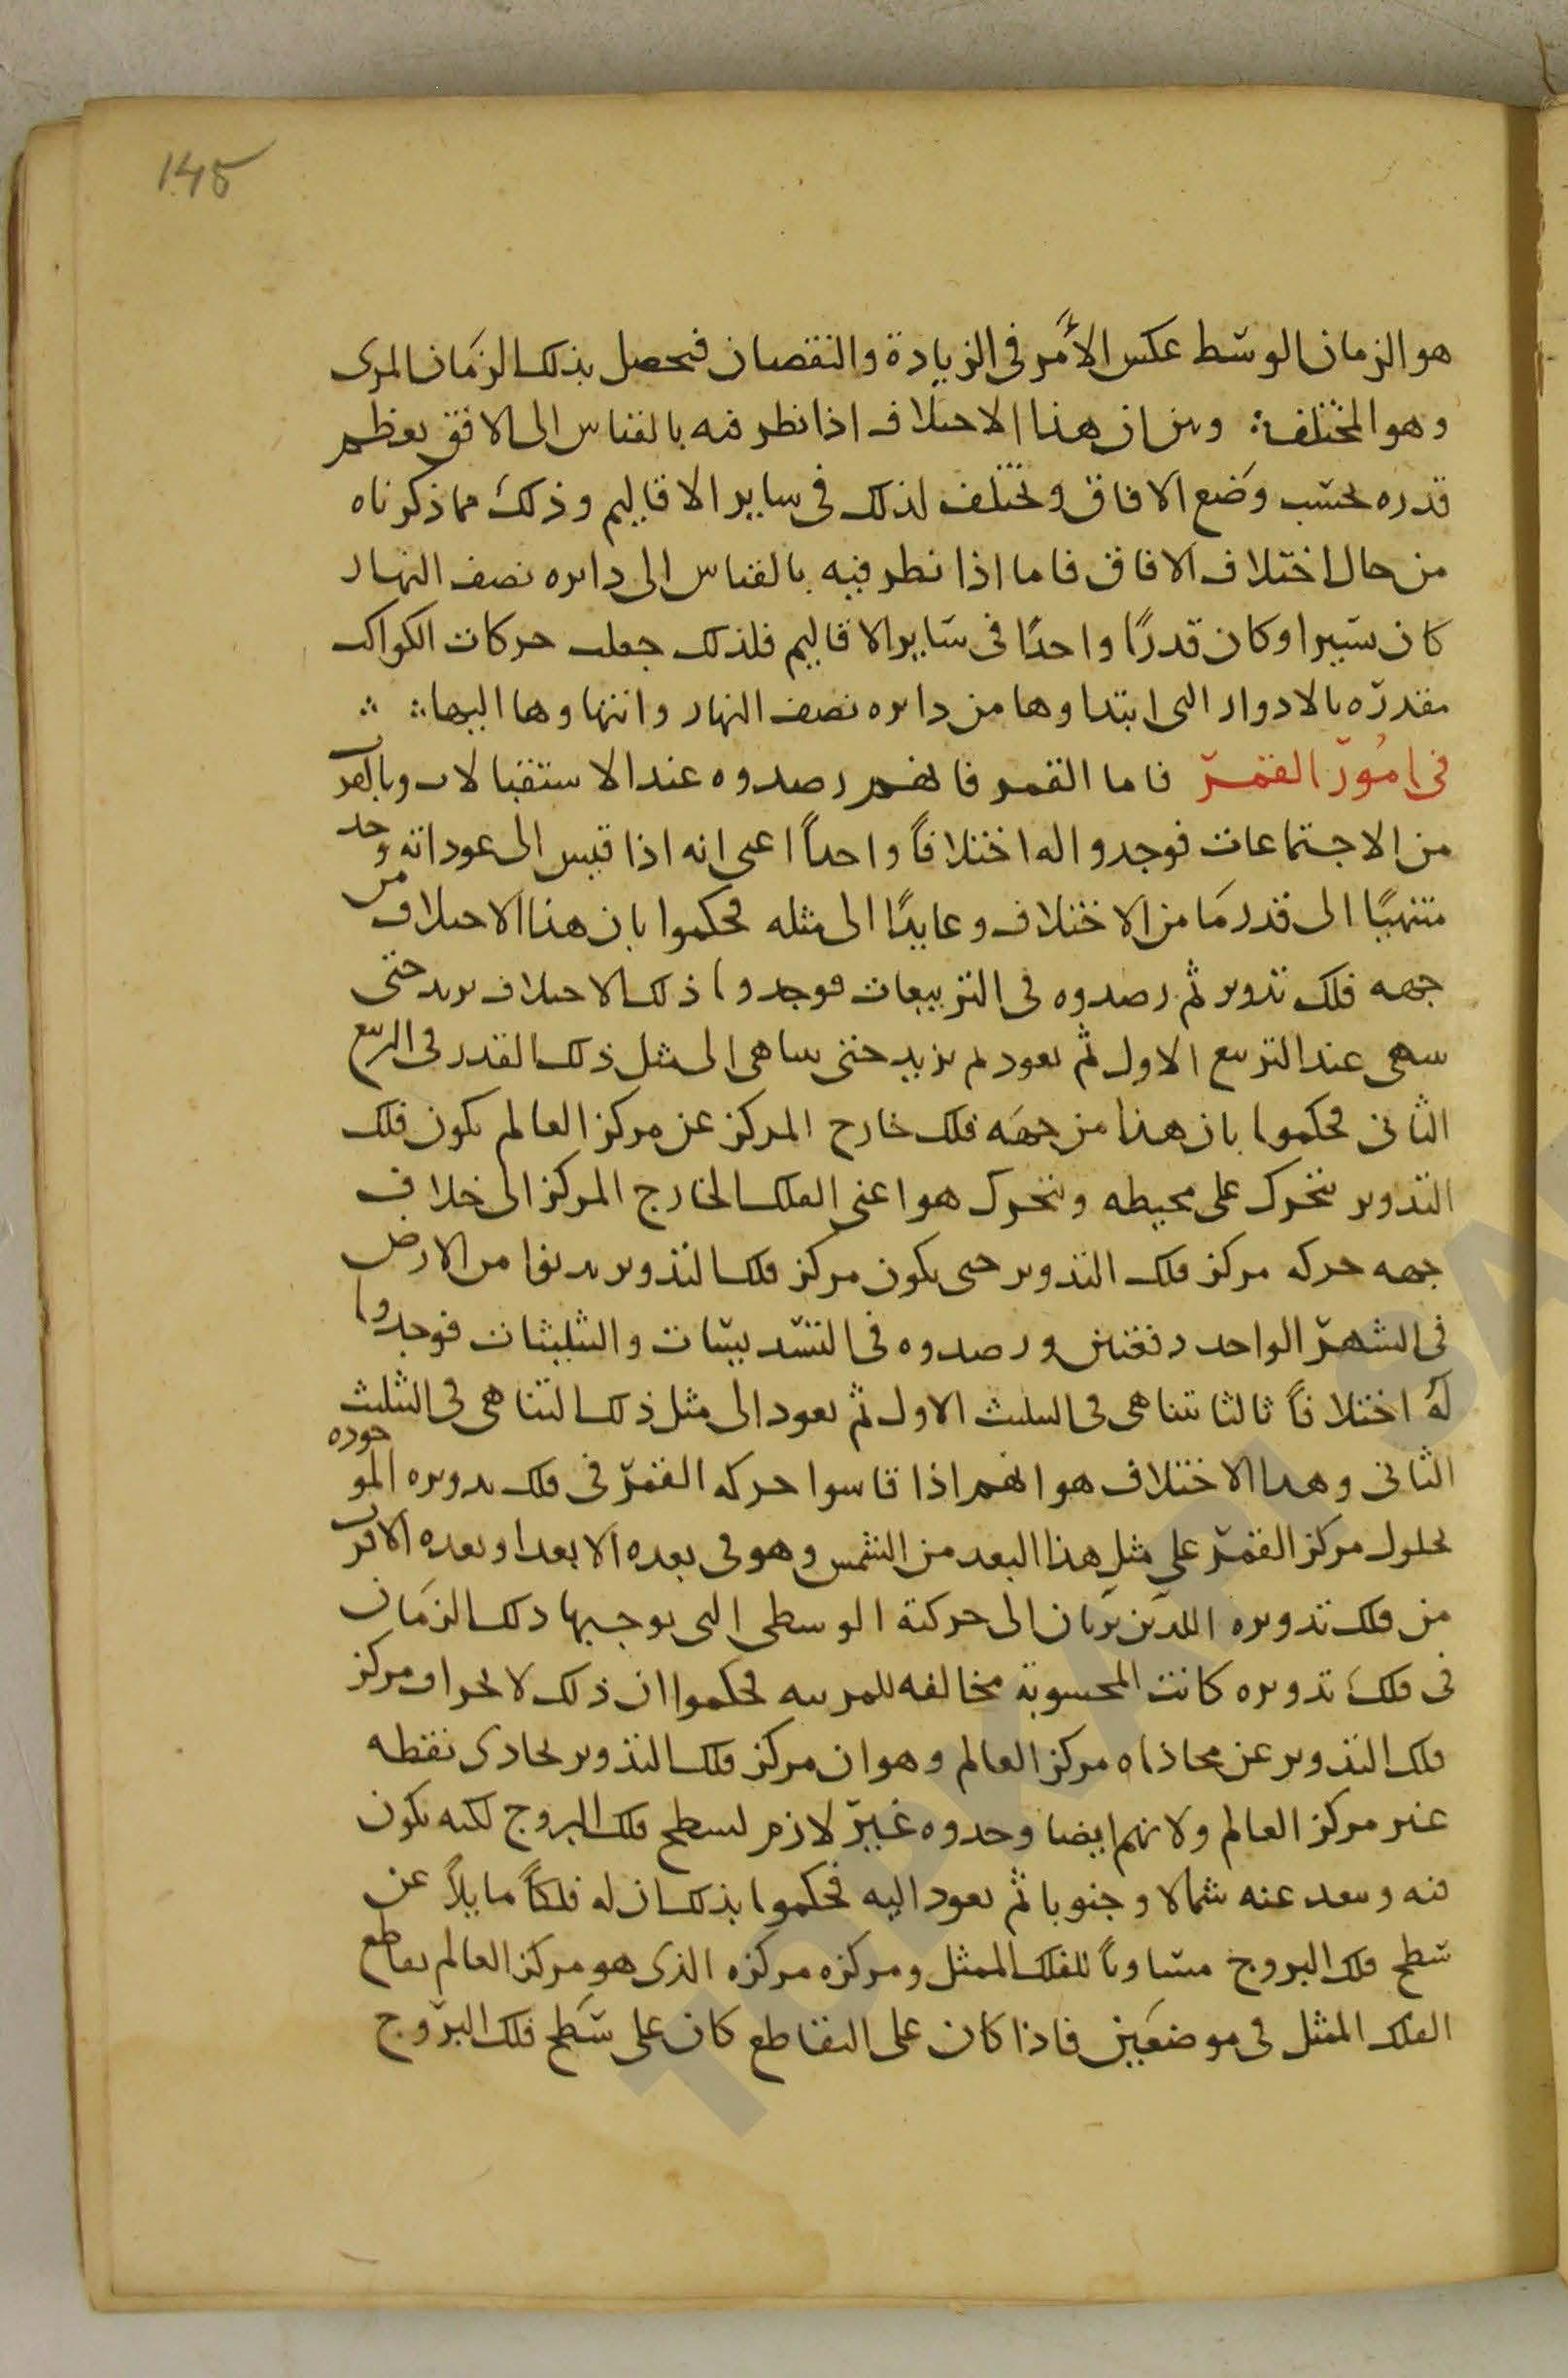 145
هو الزمان الوسط عكس الأمر فى الزيادة والنقصان فيحصل بذلك الزمان المرى
وهو المختلف وبين ان هذا الاختلاف اذا نظر فيه بالقياس الى الافق يعظم
قدره بحسب وضع الافاق ويختلف لذلك فى ساير الاقاليم وذلك مما ذكرناه
من حال اختلاف الافاق فاما اذا نظر فيه بالقياس الى دايره نصف النهار
كان يسيرا وكان قدرًا واحدًا فى ساير الاقاليم فلذلك جعلت حركات الكواكب
مقدره بالادوار التى ابتداوها من دايره نصف النهار وانتهاوها اليها
فى امور القمر فاما القمر فانهم رصدوه عند الاستقبالات وبالقرب
من الاجتماعات فوجدوا له اختلافاً واحداً اعنى انه اذا قيس الى عوداته وجد
منتهيًا الى قدر ما من الاختلاف وعايدًا الى مثله فحكموا بان هذا الاختلاف من
جهه فلك تدوير ثم رصدوه فى التربيعات فوجدوا ذلك الاختلاف يزيد حتى
ينتهى عند التربيع الاول ثم يعود ثم يزيد حتى يتناهى الى مثل ذلك القدر فى الربيع
الثانى فحكموا بان هذا من جهه فلك خارج المركز عن مركز العالم يكون فلك
التدوير يتحرك على محيطه ويتحرك هو اعنى الفلك الخارج المركز الى خلاف
جهه حركه مركز فلك التدوير حتى يكون مركز فلك التدوير يدنوا من الارض
فى الشهر الواحد دفعتين ورصدوه فى التسديسات والتثليثات فوجدوا
له اختلافاً ثالثا يتناهى فى التثليث الاول ثم يعود الى مثل ذلك التناهى فى التثليث
الثانى وهذا الاختلاف هو انهم اذا قاسوا حركه القمر فى فلك تدويره الموجوده
لحلول مركز القمر على مثل هذا البعد من الشمس وهو فى بعده الابعد او بعده الاقرب
من فلك تدويره اللذين يريان الى حركته الوسطى التى يوجبها ذلك الزمان
فى فلك تدويره كانت المحسوبة مخالفه للمرييه فحكموا ان ذلك لانحراف مركز
فلك التدوير عن محاذاه مركز العالم وهو ان مركز فلك التدوير يحاذى نقطه
غير مركز العالم ولانهم ايضا وجدوه غير لازم لسطح فلك البروج لكنه يكون
فيه ويبعد عنه شمالا وجنوبا ثم يعود اليه فحكموا بذلك ان له فلكاً مايلاً عن
سطح فلك البروج مساوياً للفلك الممثل ومركزه مركزه الذى هو مركز العالم يقاطع
الفلك الممثل فى موضعين فاذا كان على التقاطع كان على سطح فلك البروج